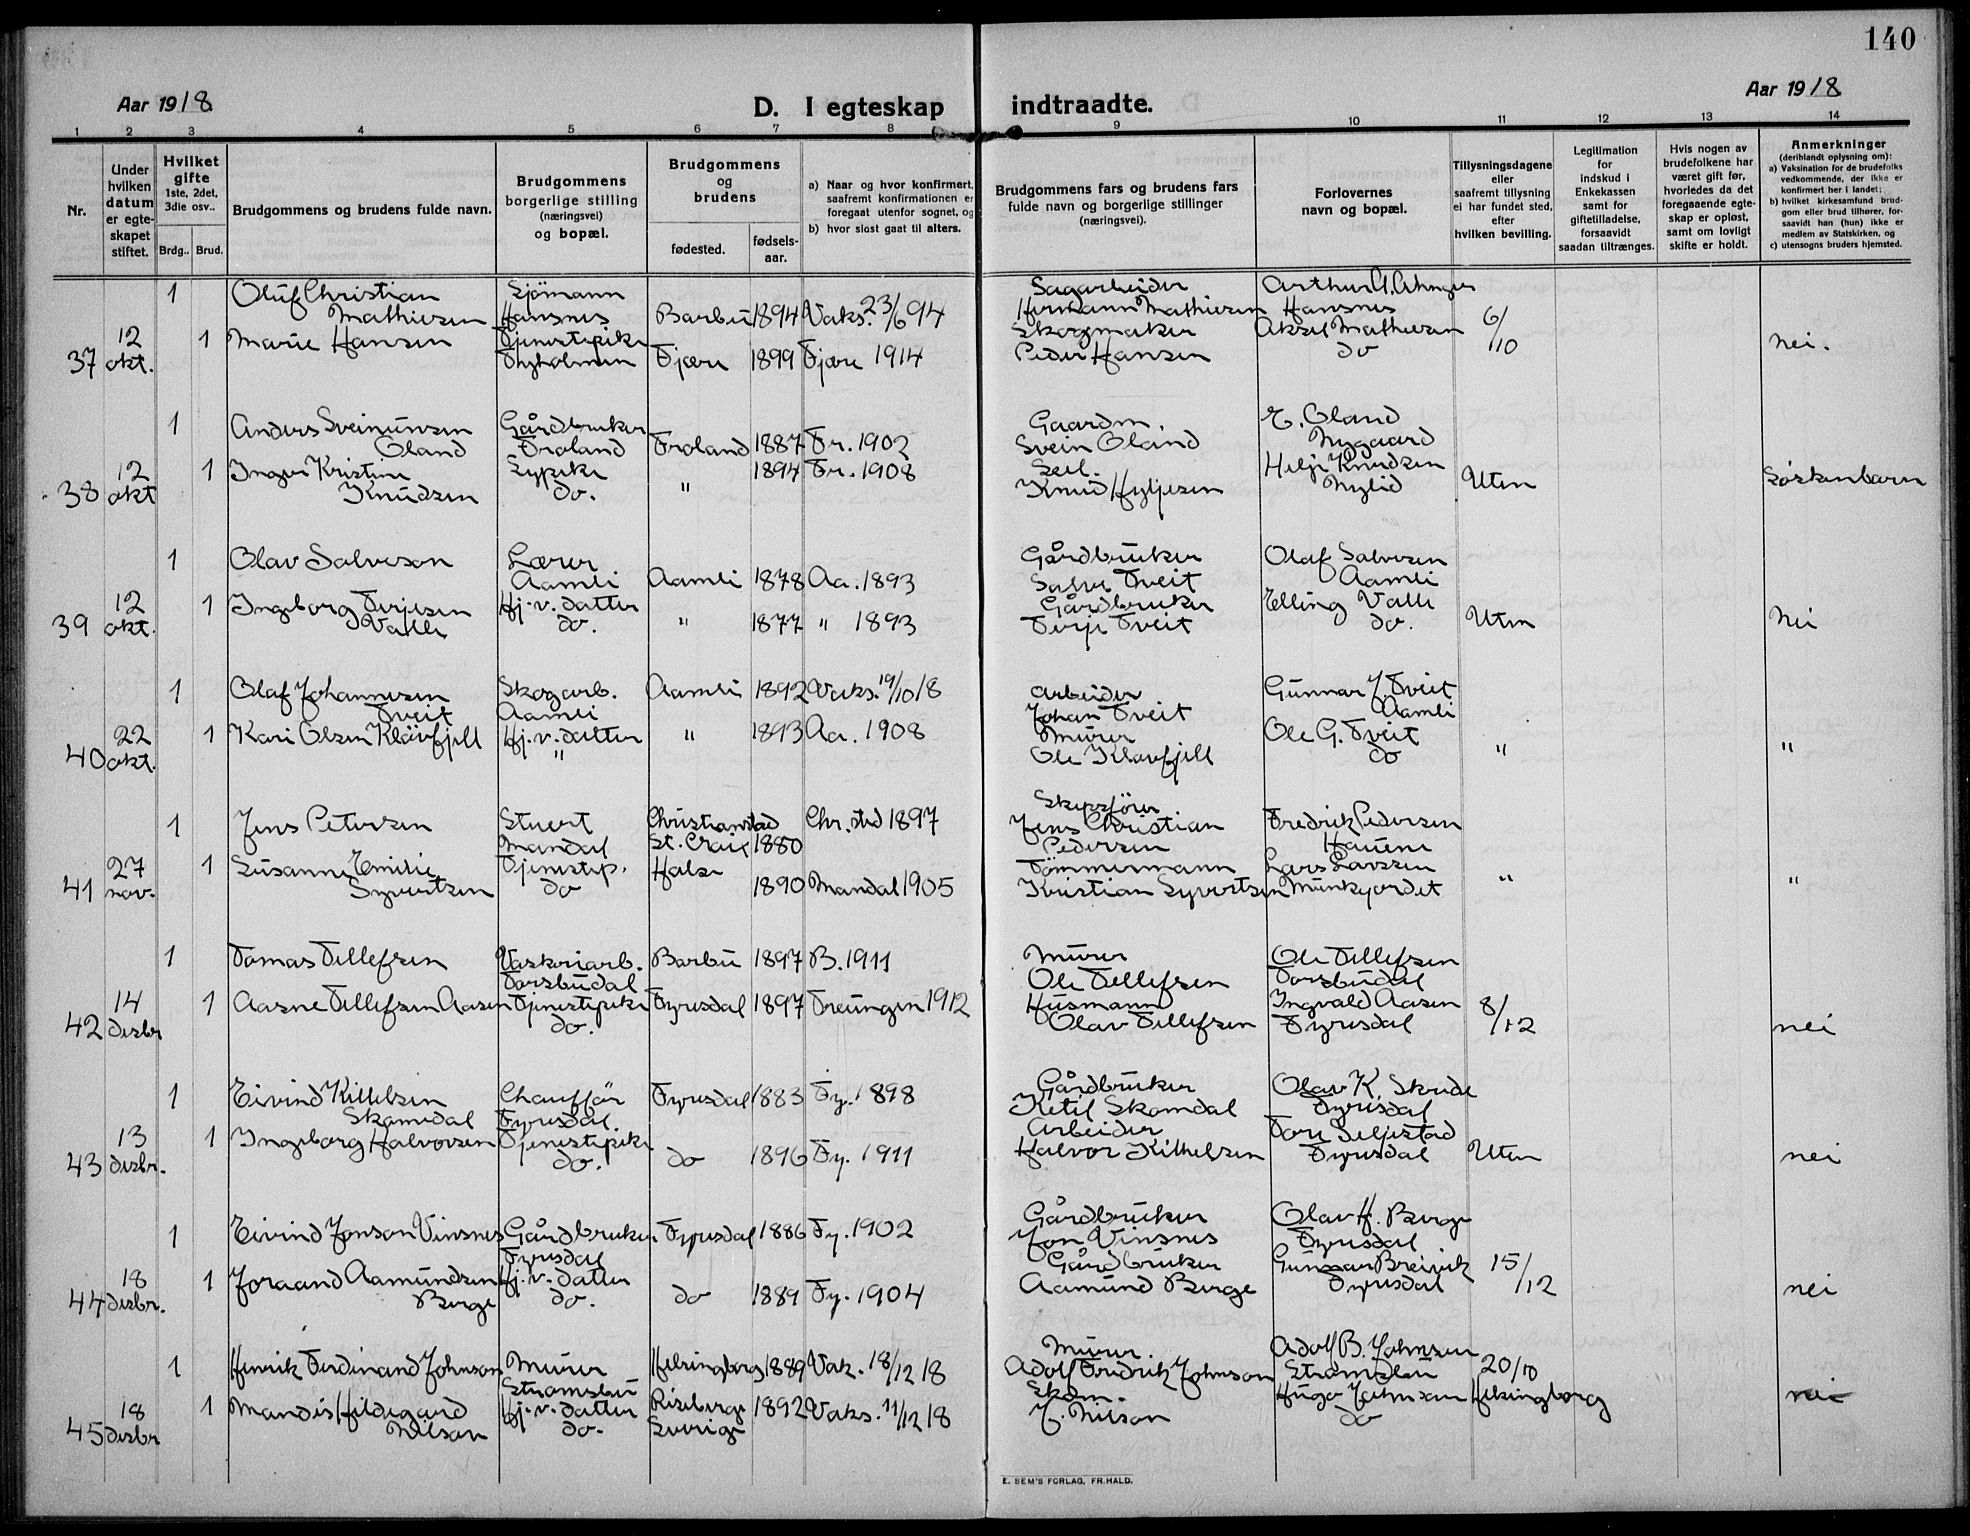 140
Aar 1918
D. I egteskap indtraadte.
Aar 1918
1 2 3 4 5 6 7 8 9 10 11 12 13 14
Nr.
Under hvilken datum er egteskapet stiftet.
Hvilket gifte 1ste, 2det, 3die osv..
Brdg.. Brud.
Brudgommens og brudens fulde navn.
Brudgommens borgerlige stilling (næringsvei) og bopæl.
Brudgommens og brudens
fødested. fødselsaar.
a) Naar og hvor konfirmert, saafremt konfirmationen er foregaat utenfor sognet, og
b) hvor sidst gaat til alters.
Brudgommens fars og brudens fars fulde navn og borgerlige stillinger (næringsvei).
Forlovernes navn og bopæl.
Tillysningsdagene eller saafremt tillysning ei har fundet sted, efter hvilken bevilling.
Legitimation for indskud i Enkekassen samt for giftetilladelse, forsaavidt saadan tiltrænges.
Hvis nogen av brudefolkene har været gift før, hvorledes da det foregaaende egteskap er opløst, samt om lovligt skifte er holdt.
Anmerkninger (deriblandt oplysning om): a) Vaksination for de brudefolks vedkommende, der ikke er konfirmert her i landet; b) hvilket kirkesamfund brudgom eller brud tilhører, forsaavidt han (hun) ikke er medlem av Statskirken, og c) utensogns bruders hjemsted.
1 Oluf Christian Sjömann Sagarbeider Arthur
Mathiesen Hansnes Barbu 1894 Vaks. 23/6 94 Hermann Mathiesen Hansnes 6/10
12 1 Marie Hansen Tjenestepike Skogmaker Aksel Mathiesen
37 okt. Fjære 1899 Fjære 1914 Peder Hansen do nei.
1 Anders Sveinunsen Gårdbruker Gaardm. E. Oland
Oland Froland Froland 1887 Fr. 1902 Svein Oland Nygaard
12 1 Inger Kristine Sypike 1894 Fr. 1908 Seil. Helje Knudsen
38 okt Knudsen do. " Knud Hyljesen Nylid Uten Søskenbarn
1 Olav Salveson Lærer Gårdbruker Olaf Salvesen
Aamli Aamli 1878 Aa. 1893 Salve Tveit Aamli
12 1 Ingeborg Terjesen Hj. v. datter Gårdbruker Elling Valle
39 okt. Valle do. " 1877 " 1893 Terje Tveit do. Uten Nei
1 Olaf Johannesen Skogarb. Aamli 1892 Vaks. 19/10 18 Arbeider Gunnar J. Tveit
Tveit Aamli Johan Tveit Aamli
22 1 Kari Olsen Klävfjell Hj. v. datter " 1893 Aa. 1908 Murer Ole G. Tveit
40 okt. " Ole Klavfjell do " "
Skysförer
1 Jens Petersen Stuert Christiansted Chr. sted 1897 Jens Christian Fredrik Pedersen
Mandal St. Croix 1880 Pedersen Hauene
27 1 Susanne Emilie Tjenestep. Halse Tömmermann Lars Larssen
41 nov. Syvertsen do 1890 Mandal 1905 Kristian Syvertsen Munkjordet " "
1 Tomas Tellefsen Vaskeriarb. Barbu 1897 B. 1911 Murer Ole Tellefsen
Torsbudal Ole Tellefsen Torsbudal
14 1 Aasne Tellefsen Aasen Tjenestepike Fyresdal 1897 Treungen 1912 Husmann Ingvald Aasen 8/12
42 desbr do. Olav Tellefsen Fyresdal nei
1 Eivind Killelsen Chauffør Fyresdal 1883 Fy. 1898 Gårdbruker Olav K. Skrede
Skomedal Fyresdal. Ketil Skomdal Fyresdal
13 1 Ingeborg Halvorsen Tjenestepike Arbeider Tore Seljestad
43 desbr. do. do 1896 Fy. 1911 Halvor Kittelsen Fyresdal Uten nei
1 Eivind Jonson Vinsnes Gårdbruker Fyresdal 1886 Fy. 1902 Gårdbruker Olav H. Berge
Fyresdal Jon Vinsnes Fyresdal
18 1 Joraand Aamundsen Hj. v. datter Gårdbruker Gunnar Breivik 15/12
44 desbr. Berge do. do 1889 Fy. 1904 Aamund Berge Fyresdal nei
1 Henrik Ferdinand Johnson Murer Helsingborg 1889 Vak. 18/12 18 Murer. Adolf B. Johnsen
Strømsbu Adolf Fredrik Johnson Strømsbu 20/10
18 1 Mandis Hildegard Hj. v. datter Riseberge 1892 Vaks. 11/12 18 Hugo Johnson Helsingborg nei
45 desbr Nilson do. Sverige Nilson do
E. SEM'S FORLAG, FR.HALD.